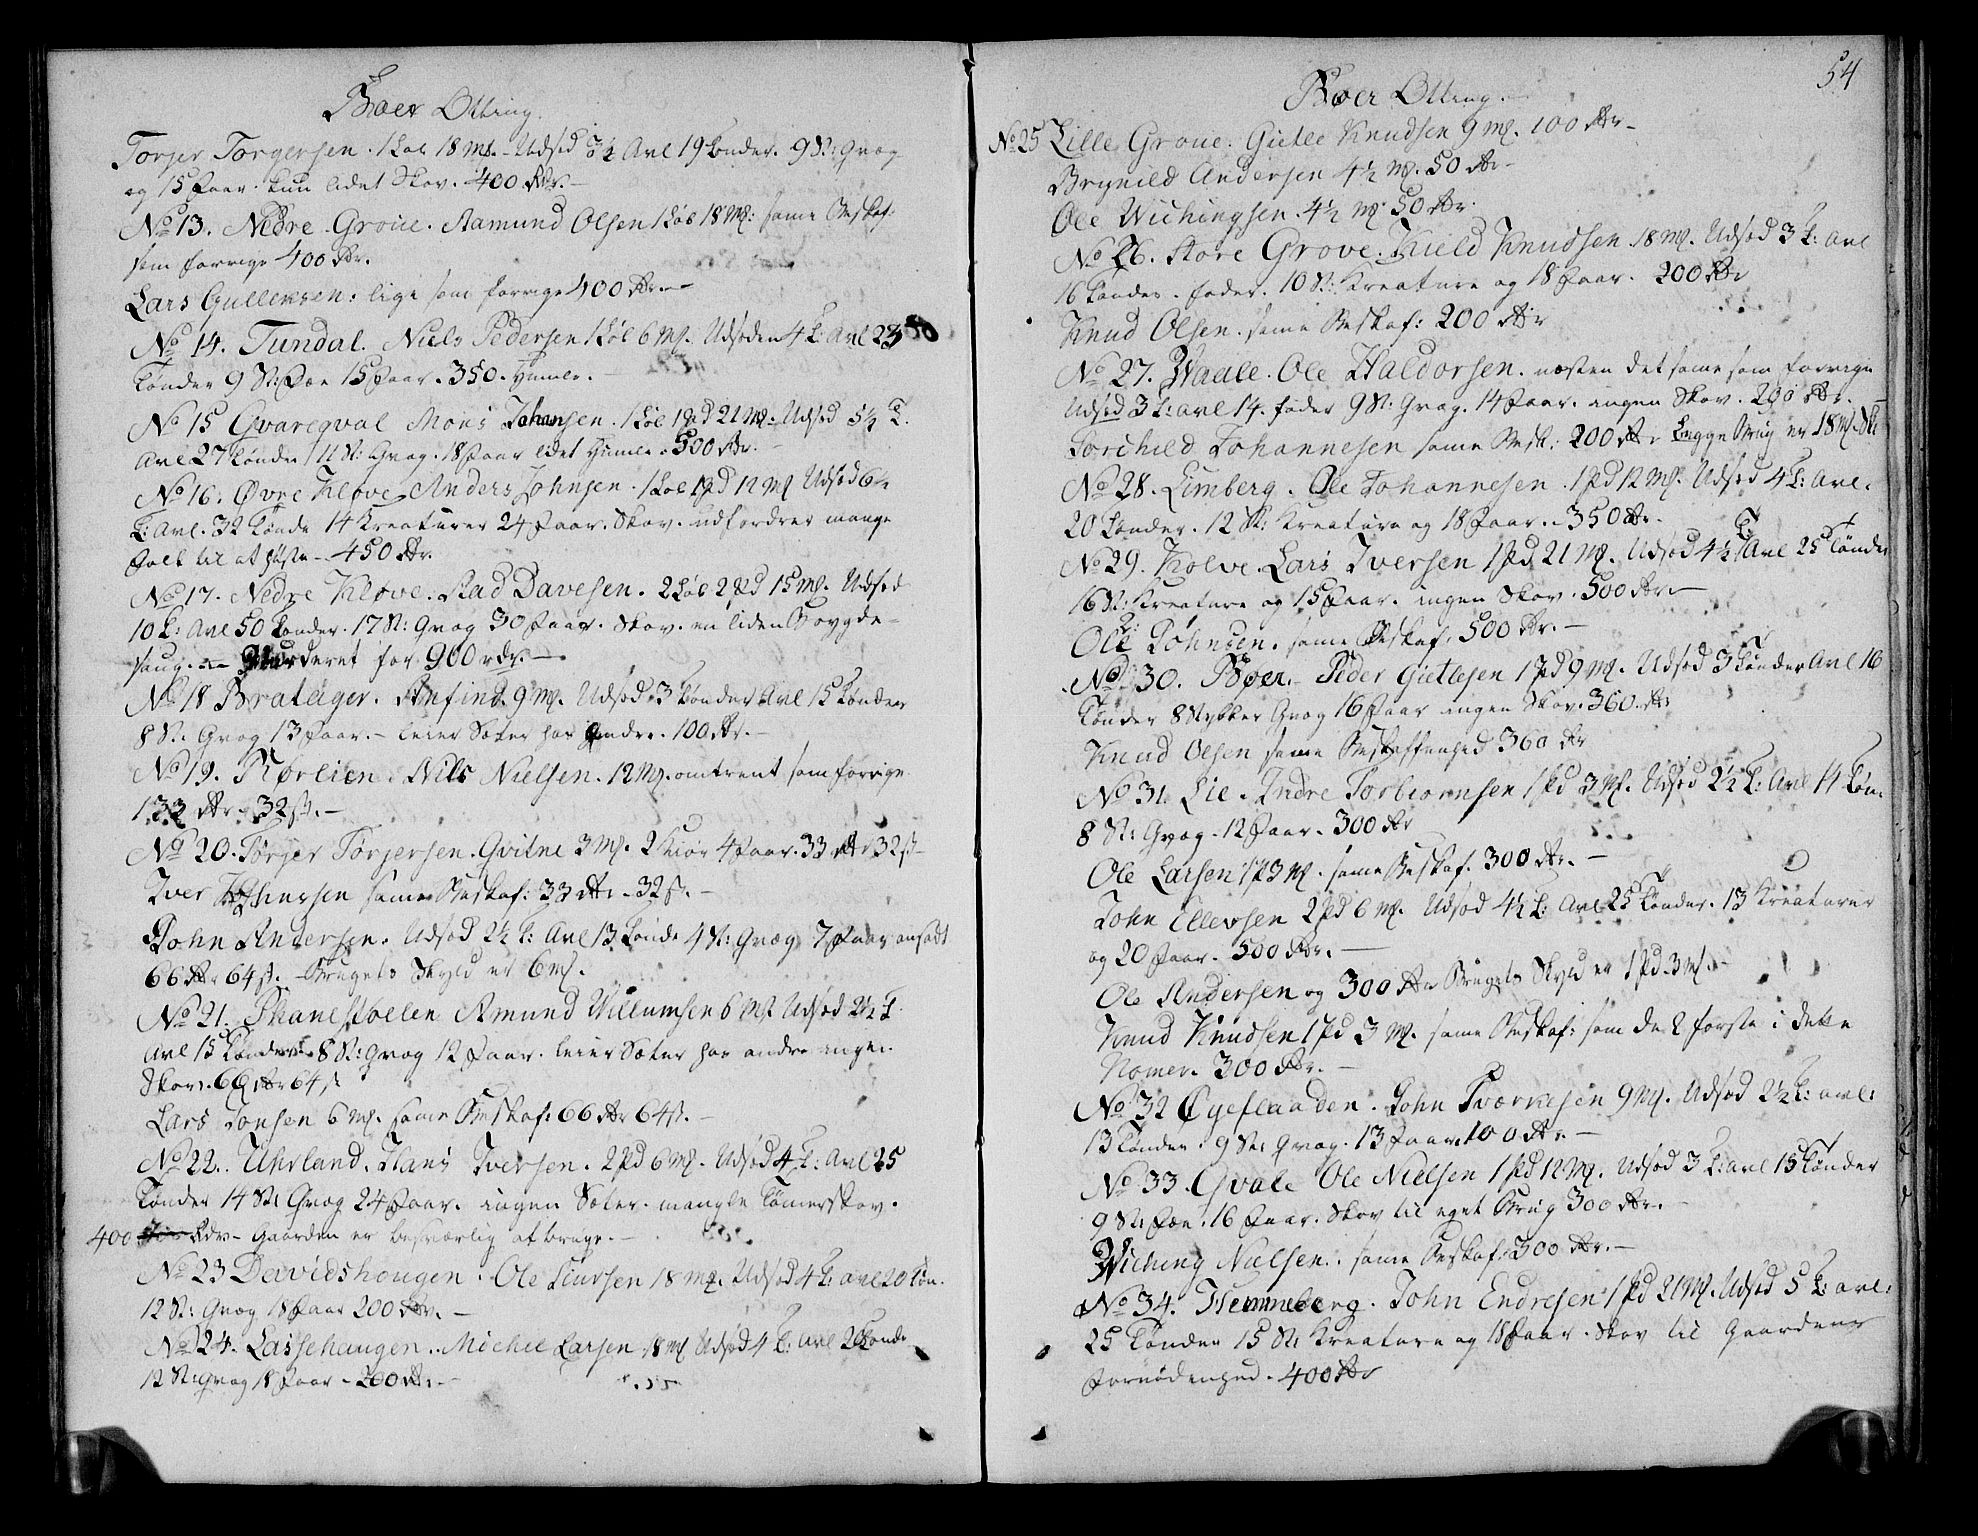 Bøer Otting.
Torger Torgersen. 1 Løb 18 Mk. Udsød 3½ Avl 19 Tønder. 9 St: Qvæg
og 15 Faar. kun lidet Skov. 400 Rdr.
No 13. Nedre Groue. Aamund Olsen 1 Løb 18 Mk: same Beskaf:
som forrige 400 Rdr.
Lars Gulleksen: lige som forrige 400 Rdr.
No 14. Tundal. Niels Pedersen 1 Løb 6 Mk. Udsøden 4 T: Avl 23
Tønder 9 St: Fæe 15 Faar. 350. Humle.
No 15 Gvareqval Mons Johansen. 1 Løb 1 pd 21 Mk. Udsød 5½ T.
Avl 27 Tønder 11 St: Qvæg. 18 Faar lidet Humle. 500 Rdr.
No 16. Øvre Kløve Anders Johnsen. 1 Løb 1 pd 12 Mk Udsød 6½
T: Avl. 32 Tønde 14 Kreaturer 24 Faar. Skov. udfordrer mange
Folk til at høste. 450 Rdr.
No 17. Nedre Kløve. Aad Davesen. 2 Løb 2 pd 15 Mk. Udsød
10 T: Avl 50 Tønder. 17 St: Qvæg 30 Faar. Skov. en liden Bøygde-
saug. Vurderet for 900 rdr.
No 18 Brateiger. Anfind. 9 Mk. Udsød 3 Tønder Avl 15 Tønder
8 St: Qvæg 13 Faar. leier Sæter hos Andre. 100 Rdr.
No 19. Rørlien. Nils Nielsen. 12 Mk. omtrent som forrige
133 Rdr 32 s.
No 20. Torger Torgersen. Qvitne 3 Mk. 2 Kiør 4 Faar. 33 Rdr 32 s
Iver Johnsen same Beskaf: 33 Rdr 32 s.
John Andersen. Udsød 2½ T: Avl 13 Tønde 4 St: Qvæg 7 Faar ansadt
66 Rdr 64 s. Brugets Skyld er 6 Mk.
No 21. Skanestøelen Amund Villumsen 6 Mk Udsød 2½ T.
Avl 15 Tønder 8 St: Qvæg 12 Faar. leier Sæter hos andre ingen
Skov. 66 Rdr 64 s
Lars Jonsen 6 Mk. same Beskaf: 66 Rdr 64 s.
No 22. Uhrland. Hans Iversen. 2 pd 6 Mk. Udsød 4 T: Avl 25
Tønder 14 St: Qvæg 24 Faar. ingen Sæter. mangle Tømerskov.
400 Rdr Gaarden er besværlig at bruge.
No 23 Davidshougen. Ole Siursen 18 Mk. Udsød 4 T: avl 20 Tøn.
12 St: Qvæg 18 Faar 200 Rdr.
No 24. Lassehaugen. Michel Larsen 18 Mk Udsød 4 T: avl 20 Tønde
12 St: Qvæg 18 Faar 200 Rdr.
54
Bøer Otting.
No 25 Lille Groue. Gietle Knudsen 9 Mk. 100 Rdr
Brynild Andersen 4½ Mk. 50 Rdr
Ole Wichingsen. 4½ Mk 50 Rdr.
No 26. Store Grove. Kield Knudsen 18 Mk. Udsød 3 T: Avl
16 Tønder. foder. 10 St: Kreature og 18 Faar. 200 Rdr
Knud Olsen. same Beskaf: 200 Rdr
No 27. Haale. Ole Haldorsen. næsten det same som forrige
Udsød 3 T: avl 14. foder 9 St: Qvæg. 14 Faar. ingen Skov. 200 Rdr.
Torchild Johannesen same Besk: 200 Rdr Begge Brug er 18 Mk Sk:
No 28. Limberg. Ole Johannesen. 1 Pd 12 Mk. Udsød 4 T: Avl.
20 Tønder. 12 St: Kreature og 18 Faar. 350 Rdr.
No 29. Kolve. Lars Iversen 1 Pd 21 Mk. Udsød 4½ T Avl 25 Tønder
16 St: Kreature og 15 Faar. ingen Skov. 500 Rdr.
Ole Johnsen. same Beskaf: 500 Rdr.
No 30. Bøer. Peder Gietlesen 1 Pd 9 Mk. Udsød 3 Tønder Avl 16
Tønder 8 Stykker Qvæg 16 Faar ingen Skov. 360 Rdr
Knud Olsen same Beskaffenhed 360 Rdr
No 31. Lie. Endre Torbiørnsen 1 Pd 3 Mk. Udsød 2½ T: Avl 14 Tøn.
8 St: Qvæg. 12 Faar. 300 Rdr
Ole Larsen 1 P 3 Mk. same Beskaf. 300 Rdr.
John Ellevsen 2 Pd 6 Mk. Udsød 4½ T: Avl 25 Tønder. 13 Kreaturer
og 20 Faar. 500 Rdr.
Ole Andersen og 300 Rdr Brugets Skyld er 1 Pd 3 Mk.
Knud Knudsen 1 Pd 3 Mk. same Beskaf: som de 2 første i dette
Nomer. 300 Rdr.
No 32 Øyeflaaden. John Sværkesen 9 Mk. Udsød 2½ T: avl:
13 Tønder. 9 St: Qvæg. 13 Faar. 100 Rdr.
No 33. Qvale Ole Nielsen 1 Pd 12 Mk. Udsød 3 T: avl 15 Tønder
9 St: Fæe. 16 Faar. Skov til eget Brug 300 Rdr.
Wiching Nielsen. same Beskaf: 300 Rdr.
No 34. Hemmeberg. John Endresen 1 Pd 21 Mk. Udsød 5 T: avl:
25 Tønder 15 St: Kreature og 18 Faar. Skov til Gaardens
Fornødenhed. 400 Rdr